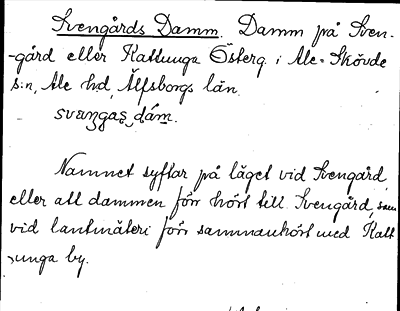 Svengårds Damm. Damm på Sven-
-gård eller Kattunga Österg. i Ale-Skövde
s:n, Ale hd, Älfsborgs län.
svæŋgas dám.
Namnet syftar på läget vid Svengård,
eller att dammen förr hört till Svengård, som
vid lantmäteri förr sammanhört med Katt
unga by.